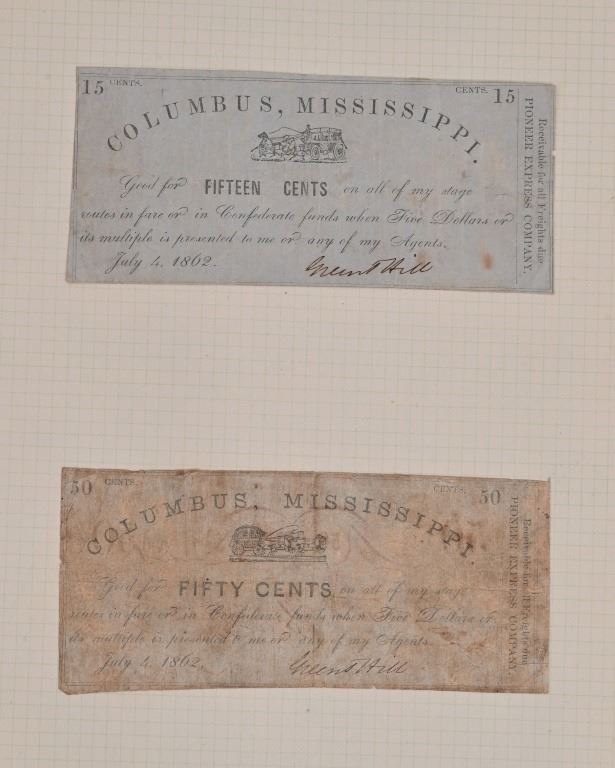 15 CENTS. CENTS. 15
COLUMBUS, MISSISSIPPI.
Good for FIFTEEN CENTS on all of my stage
routes in fare or in Confederate funds when Five Dollars or
its multiple is presented to me or any of my Agents.
July 4, 1862. Green T Hill
Receivable for all Freights due
PIONEER EXPRESS COMPANY.
50 CENTS. CENTS. 50
COLUMBUS, MISSISSIPPI.
Good for FIFTY CENTS on all of my stage
routes in fare or in Confederate funds when Five Dollars or
its multiple is presented to me or any of my Agents.
July 4, 1862. Green T Hill
Receivable for all Freights due
PIONEER EXPRESS COMPANY